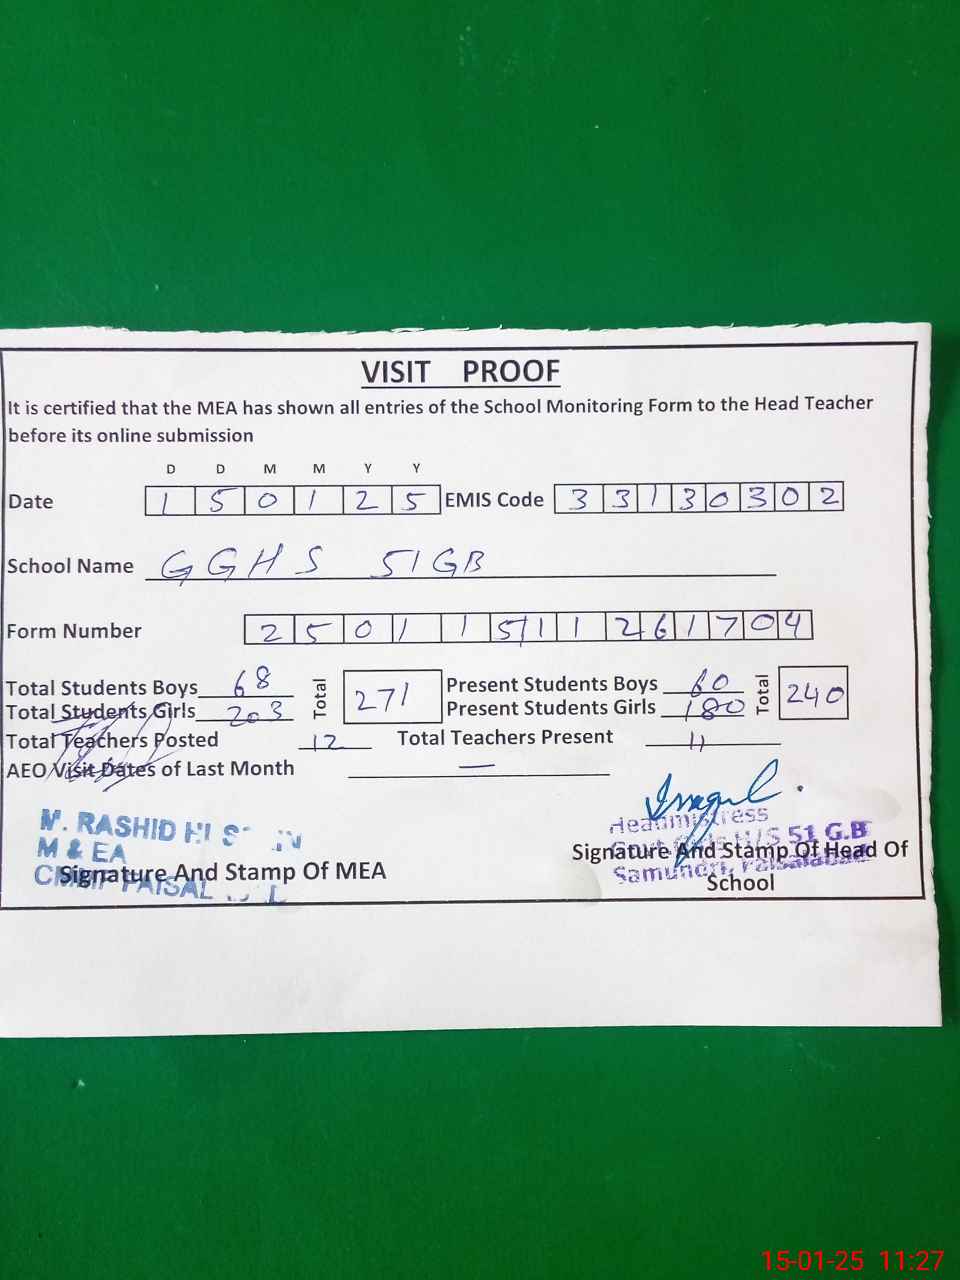 VISIT PROOF
It is certified that the MEA has shown all entries of the School Monitoring Form to the Head Teacher
before its online submission
D D M M Y Y
Date 1 5 0 1 2 5 EMIS Code 3 3 1 3 0 3 0 2
School Name GGHS 51 GB
Form Number 2 5 0 1 1 5 1 1 2 6 1 7 0 4
Total Students Boys 68 Total 271 Present Students Boys 60 Total 240
Total Students Girls 203 Present Students Girls 180
Total Teachers Posted 12 Total Teachers Present 11
AEO Visit Dates of Last Month —
M. RASHID
M & EA
Signature And Stamp Of MEA
FAISAL
Headmistress
Govt. Girls H/S 51 G.B
Signature And Stamp Of Head Of
Samundri, Faisalabad
School
15-01-25 11:27